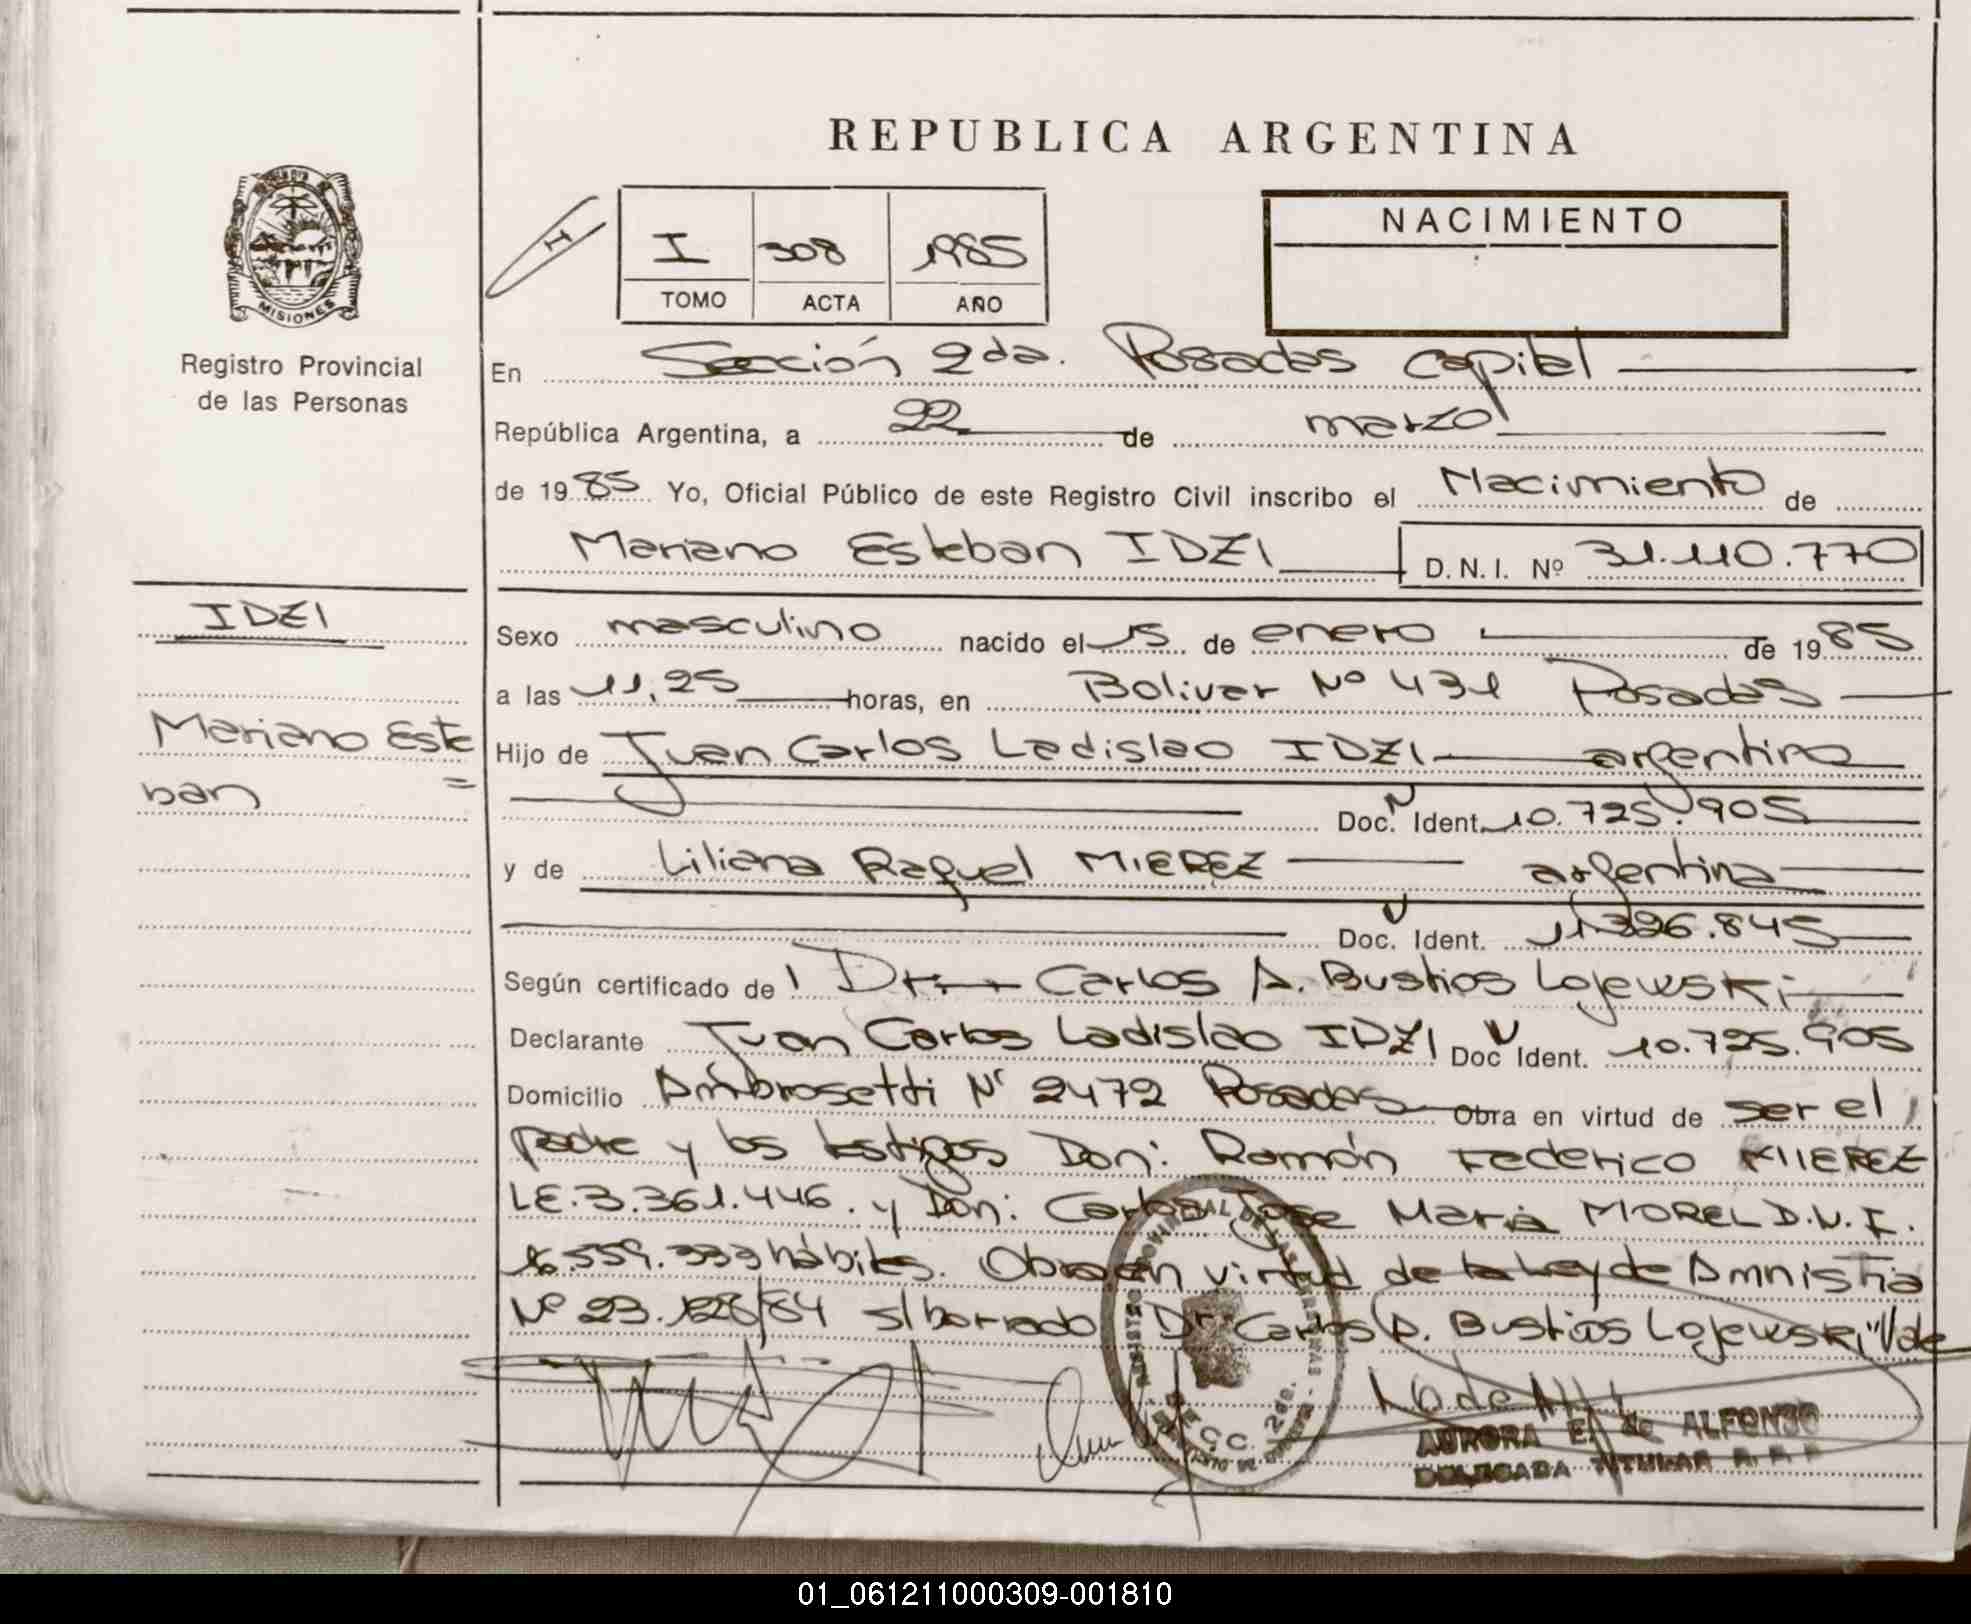 REPUBLICA ARGENTINA
MISIONES
Registro Provincial
de las Personas
H
I 308 1985
TOMO ACTA AÑO
NACIMIENTO
En Sección 2da. Posadas Capital
República Argentina, a 22 de marzo
de 1985 Yo, Oficial Público de este Registro Civil inscribo el Nacimiento de
Mariano Esteban IDZI D.N.I. Nº 31.110.770
IDZI
Mariano Este
ban =
Sexo masculino nacido el 15 de enero de 1985
a las 11,25 horas, en Bolivar Nº 431 Posadas
Hijo de Juan Carlos Ladislao IDZI argentino
Doc. Ident. 10.725.905
y de Liliana Raquel MIEREZ argentina
Doc. Ident. 11.396.845
Según certificado de Dr. Carlos A. Bustios Lojewski
Declarante Juan Carlos Ladislao IDZI Doc Ident. 10.725.905
Domicilio Ambrosetti Nº 2472 Posadas Obra en virtud de ser el
padre y los testigos Don: Ramón Federico MIEREZ
LE.3.361.446. y Don: Carlos Jose Maria MOREL D.N.I.
16.559.333 hábiles. Obra en virtud de la Ley de Amnistia
Nº 23.128/84 s/borrado Dr. Carlos A. Bustios Lojewski "Vale
AURORA E. de ALFONSO
DELEGADA TITULAR R.P.P
01_061211000309-001810